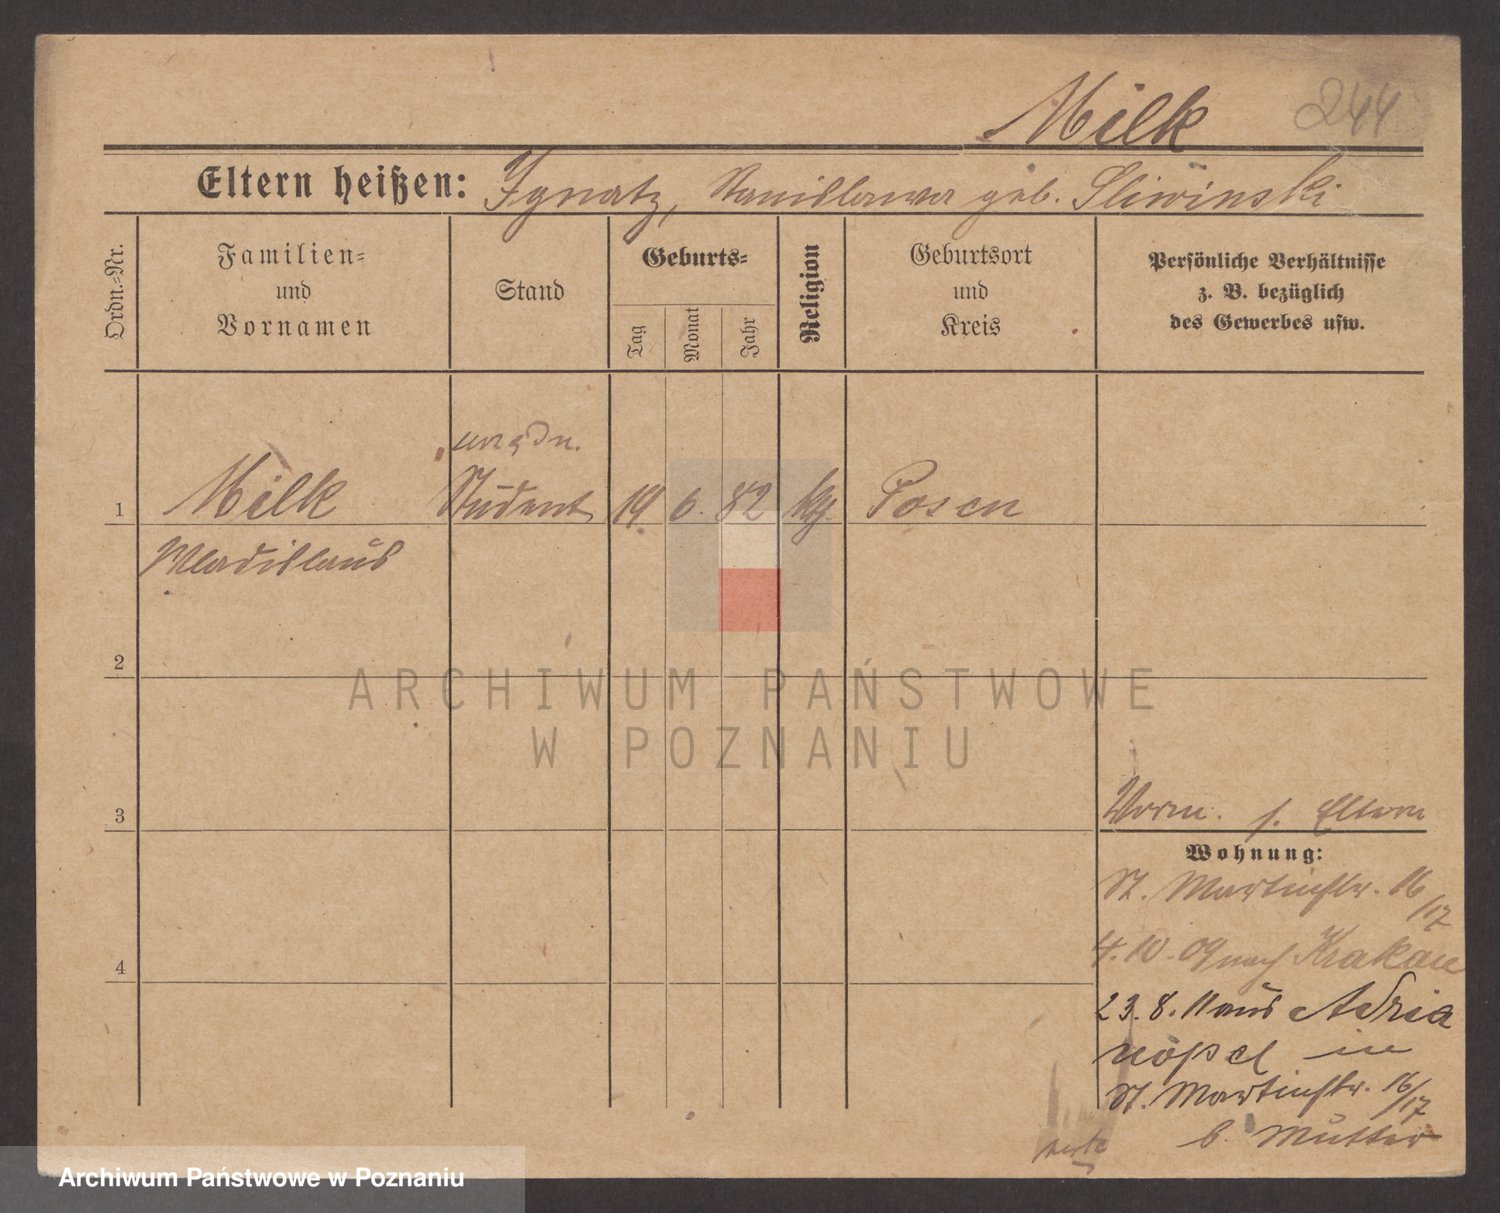 Milk 244
Eltern heißen: Ignatz, Stanislawa geb. Sliwinski
Ordn.-Nr.
Familien-
und
Vornamen
Stand
Geburts-
Tag
Monat
Jahr
Religion
Geburtsort
und
Kreis
Persönliche Verhältnisse
z. B. bezüglich
des Gewerbes usw.
1 Milk Student 19 6. 82 kth. Posen
Wladislaus
2
3
4
ARCHIWUM PAŃSTWOWE
W POZNANIU
Vorm. s. Eltern
Wohnung:
St. Martinstr. 16/17
4. 10. 09 nach Krakau
23. 8. 11 aus Adria
nopel in
St. Martinstr. 16/17
b. Mutter
Archiwum Państwowe w Poznaniu